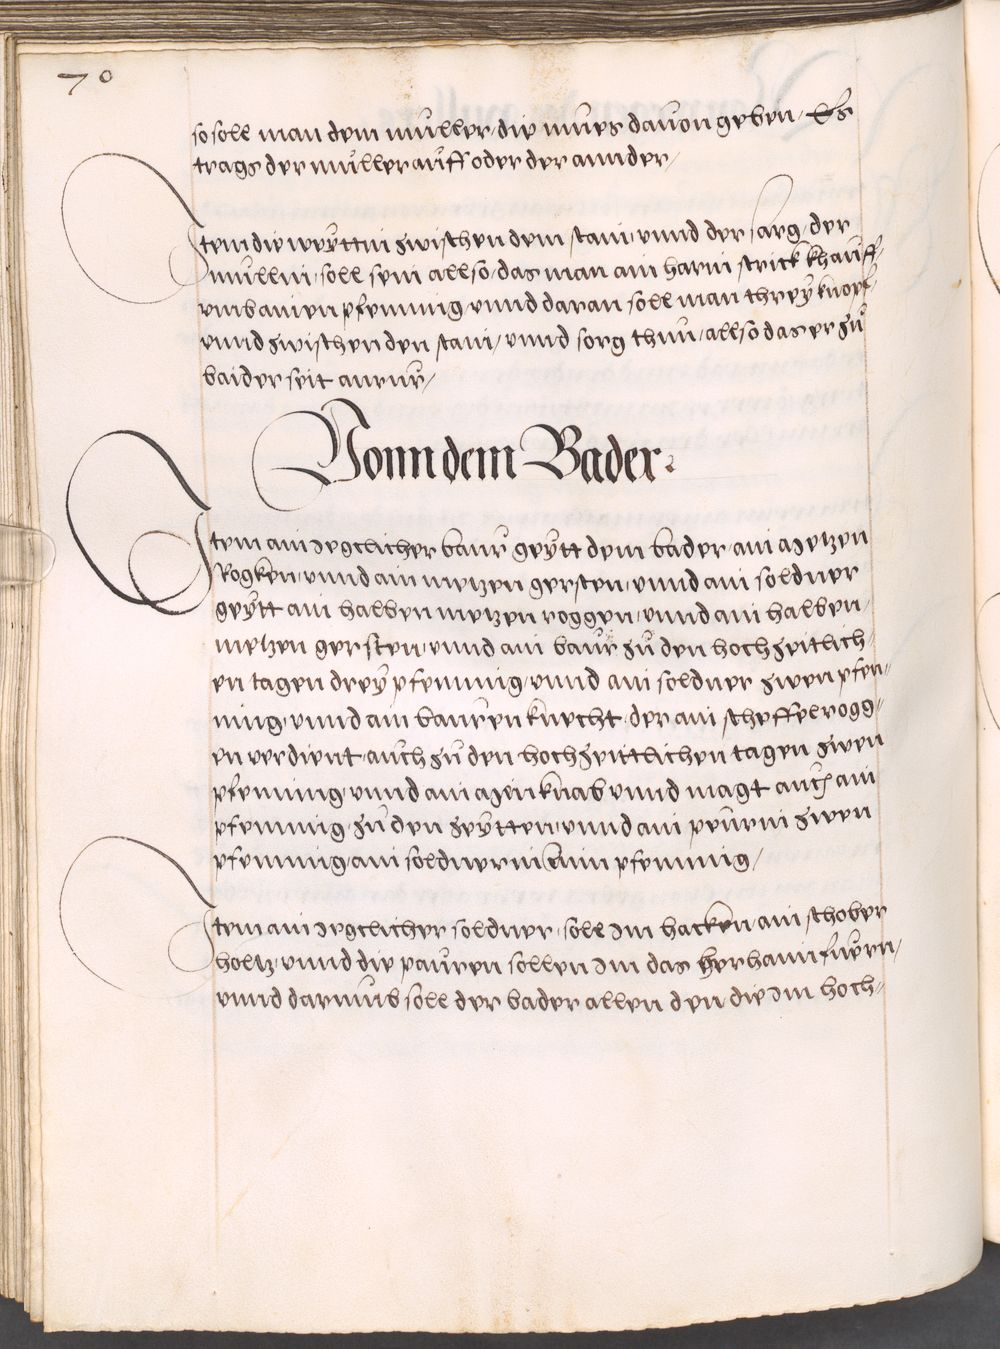 70
so soll man dem müller, die mues dauon geben, Es
trags der müller auff oder der annder,
Item die weÿttin zwischen dem stain, vnnd der sarg, der
müllin, soll sein allso, das man ain harin strick khauff,
vmb ainen pfenning, vnnd daran soll man threÿ knopf,
vnnd zwischen den stain, vnnd sorg thun, allso das er zu
baider seit anrur,
Vonn dem Bader.
Item ain Jegclicher baur geÿtt dem bader, ain metzen
Rogken, vnnd ain metzen gersten, vnnd ain soldner
geÿtt ain halben metzen roggen, vnnd ain halben,
metzen gersten, vnnd ain baur zu den hochzeitlich,
en tagen dreÿ pfenning, vnnd ain soldner zwen pfen,
ning, vnnd ain bauren knecht, der ain scheffel rogg,
en verdient, auch zu den hochzeittlichen tagen zwen
pfenning, vnnd ain knab vnnd magt auch ain
pfenning, zu den zeÿtten, vnnd ain peurin zwen
pfenning, ain soldnerin Ainn pfenning,
Item ain Jegclicher soldner, soll Im hacken, ain schober
holtz, vnnd die pauren sollen Im das herhaim fueren,
vnnd darumb soll der bader allen den, die Im hoch,